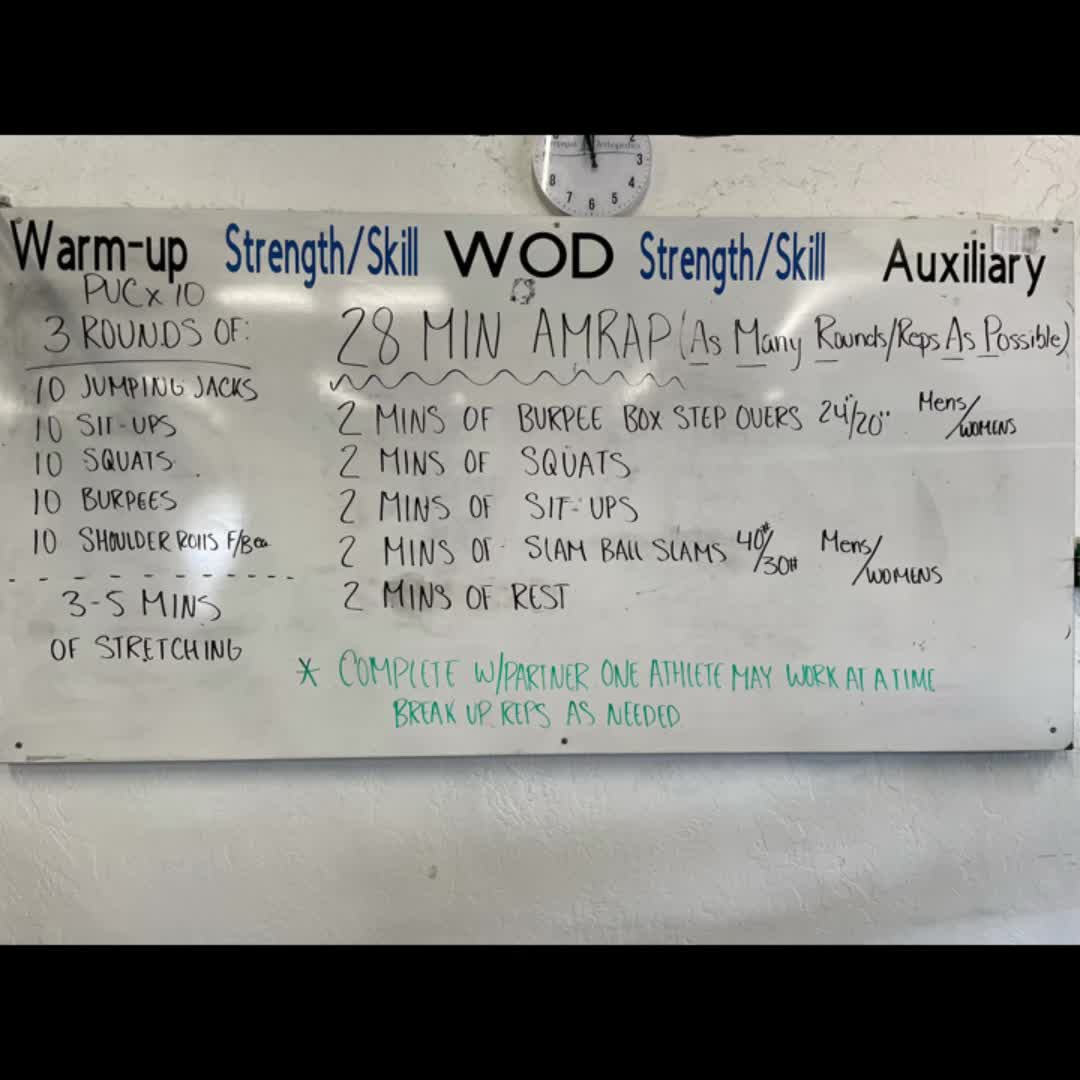 2
3
8
4
7
6
5
Warm-up Strength/Skill WOD Strength/Skill Auxiliary
PUC x 10
3 ROUNDS OF:
10 JUMPING JACKS
10 SIT-UPS
10 SQUATS
10 BURPEES
10 SHOULDER ROllS F/B ea
3-5 MINS
OF STRETCHING
28 MIN AMRAP (As Many Rounds/Reps As Possible)
2 MINS OF BURPEE BOX STEP OVERS 24"/20" Mens/WOMENS
2 MINS OF SQUATS
2 MINS OF SIT-UPS
2 MINS OF SLAM BALL SLAMS 40#/30# Mens/WOMENS
2 MINS OF REST
* COMPLETE W/PARTNER ONE ATHLETE MAY WORK AT A TIME
BREAK UP REPS AS NEEDED